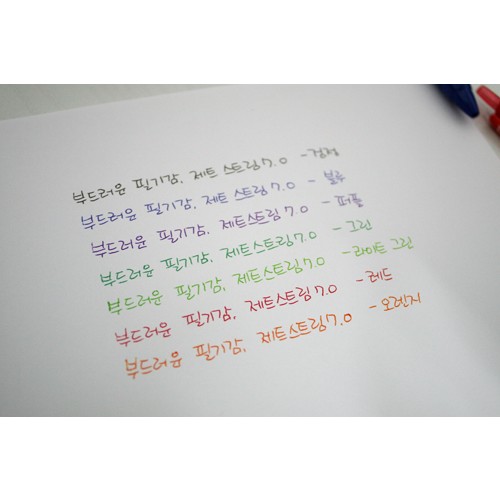 부드러운 필기감, 제트 스트림 7.0 - 검정
부드러운 필기감, 제트 스트림 7.0 - 블루
부드러운 필기감, 제트스트림 7.0 - 퍼플
부드러운 필기감, 제트스트림 7.0 - 그린
부드러운 필기감, 제트스트림 7.0 - 라이트 그린
부드러운 필기감, 제트스트림 7.0 - 레드
부드러운 필기감, 제트스트림 7.0 - 오렌지